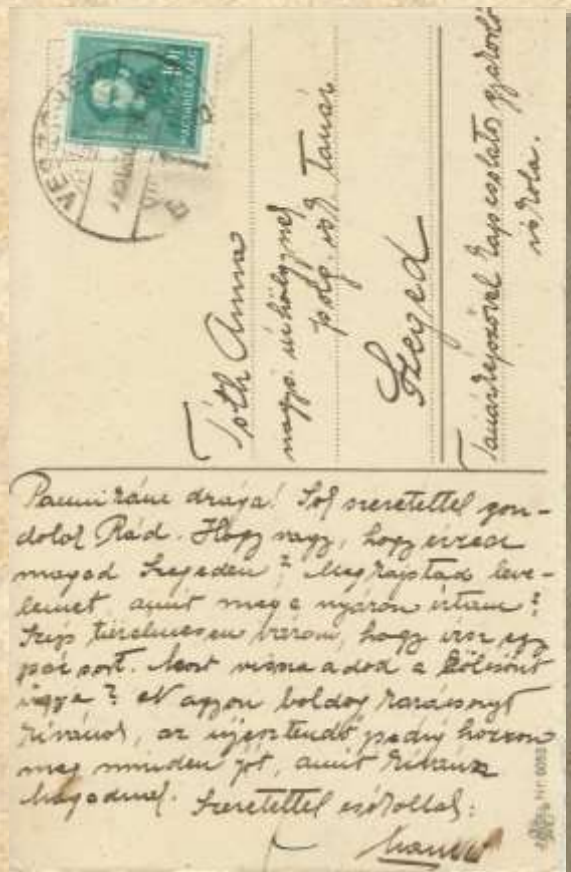 VESZPRÉM
Tóth Anna
nagys. úrhölgynek
polg. isk. tanár
Szeged
Tanárképzővel kapcsolatos gyakorló
iskola.
drága! Sok szeretettel gon-
dolok Rád. Hogy vagy, hogy érzed
magad Szegeden? Megkaptad leve-
lemet, amit még a nyáron írtam?
Szép türelmesen várom, hogy írsz egy
pár sort. Most visszaadod a kölcsönt
ugye? Nagyon boldog karácsonyt
kívánok, az újesztendő pedig hozzon
meg minden jót, amit kívánsz
Magadnak. Szeretettel csókollak:
Nr. 6053